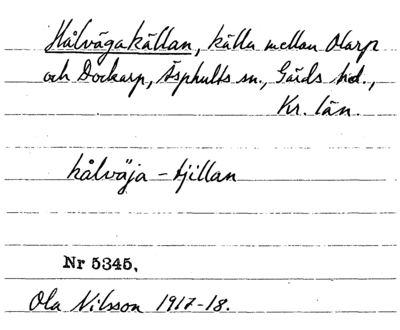 Hålvägakällan, källa mellan Olarp
och Dockarp, Äsphults sn., Gärds hd.,
Kr. län.
hålväja-tjillan
Nr 5345.
Ola Nilsson 1917-18.